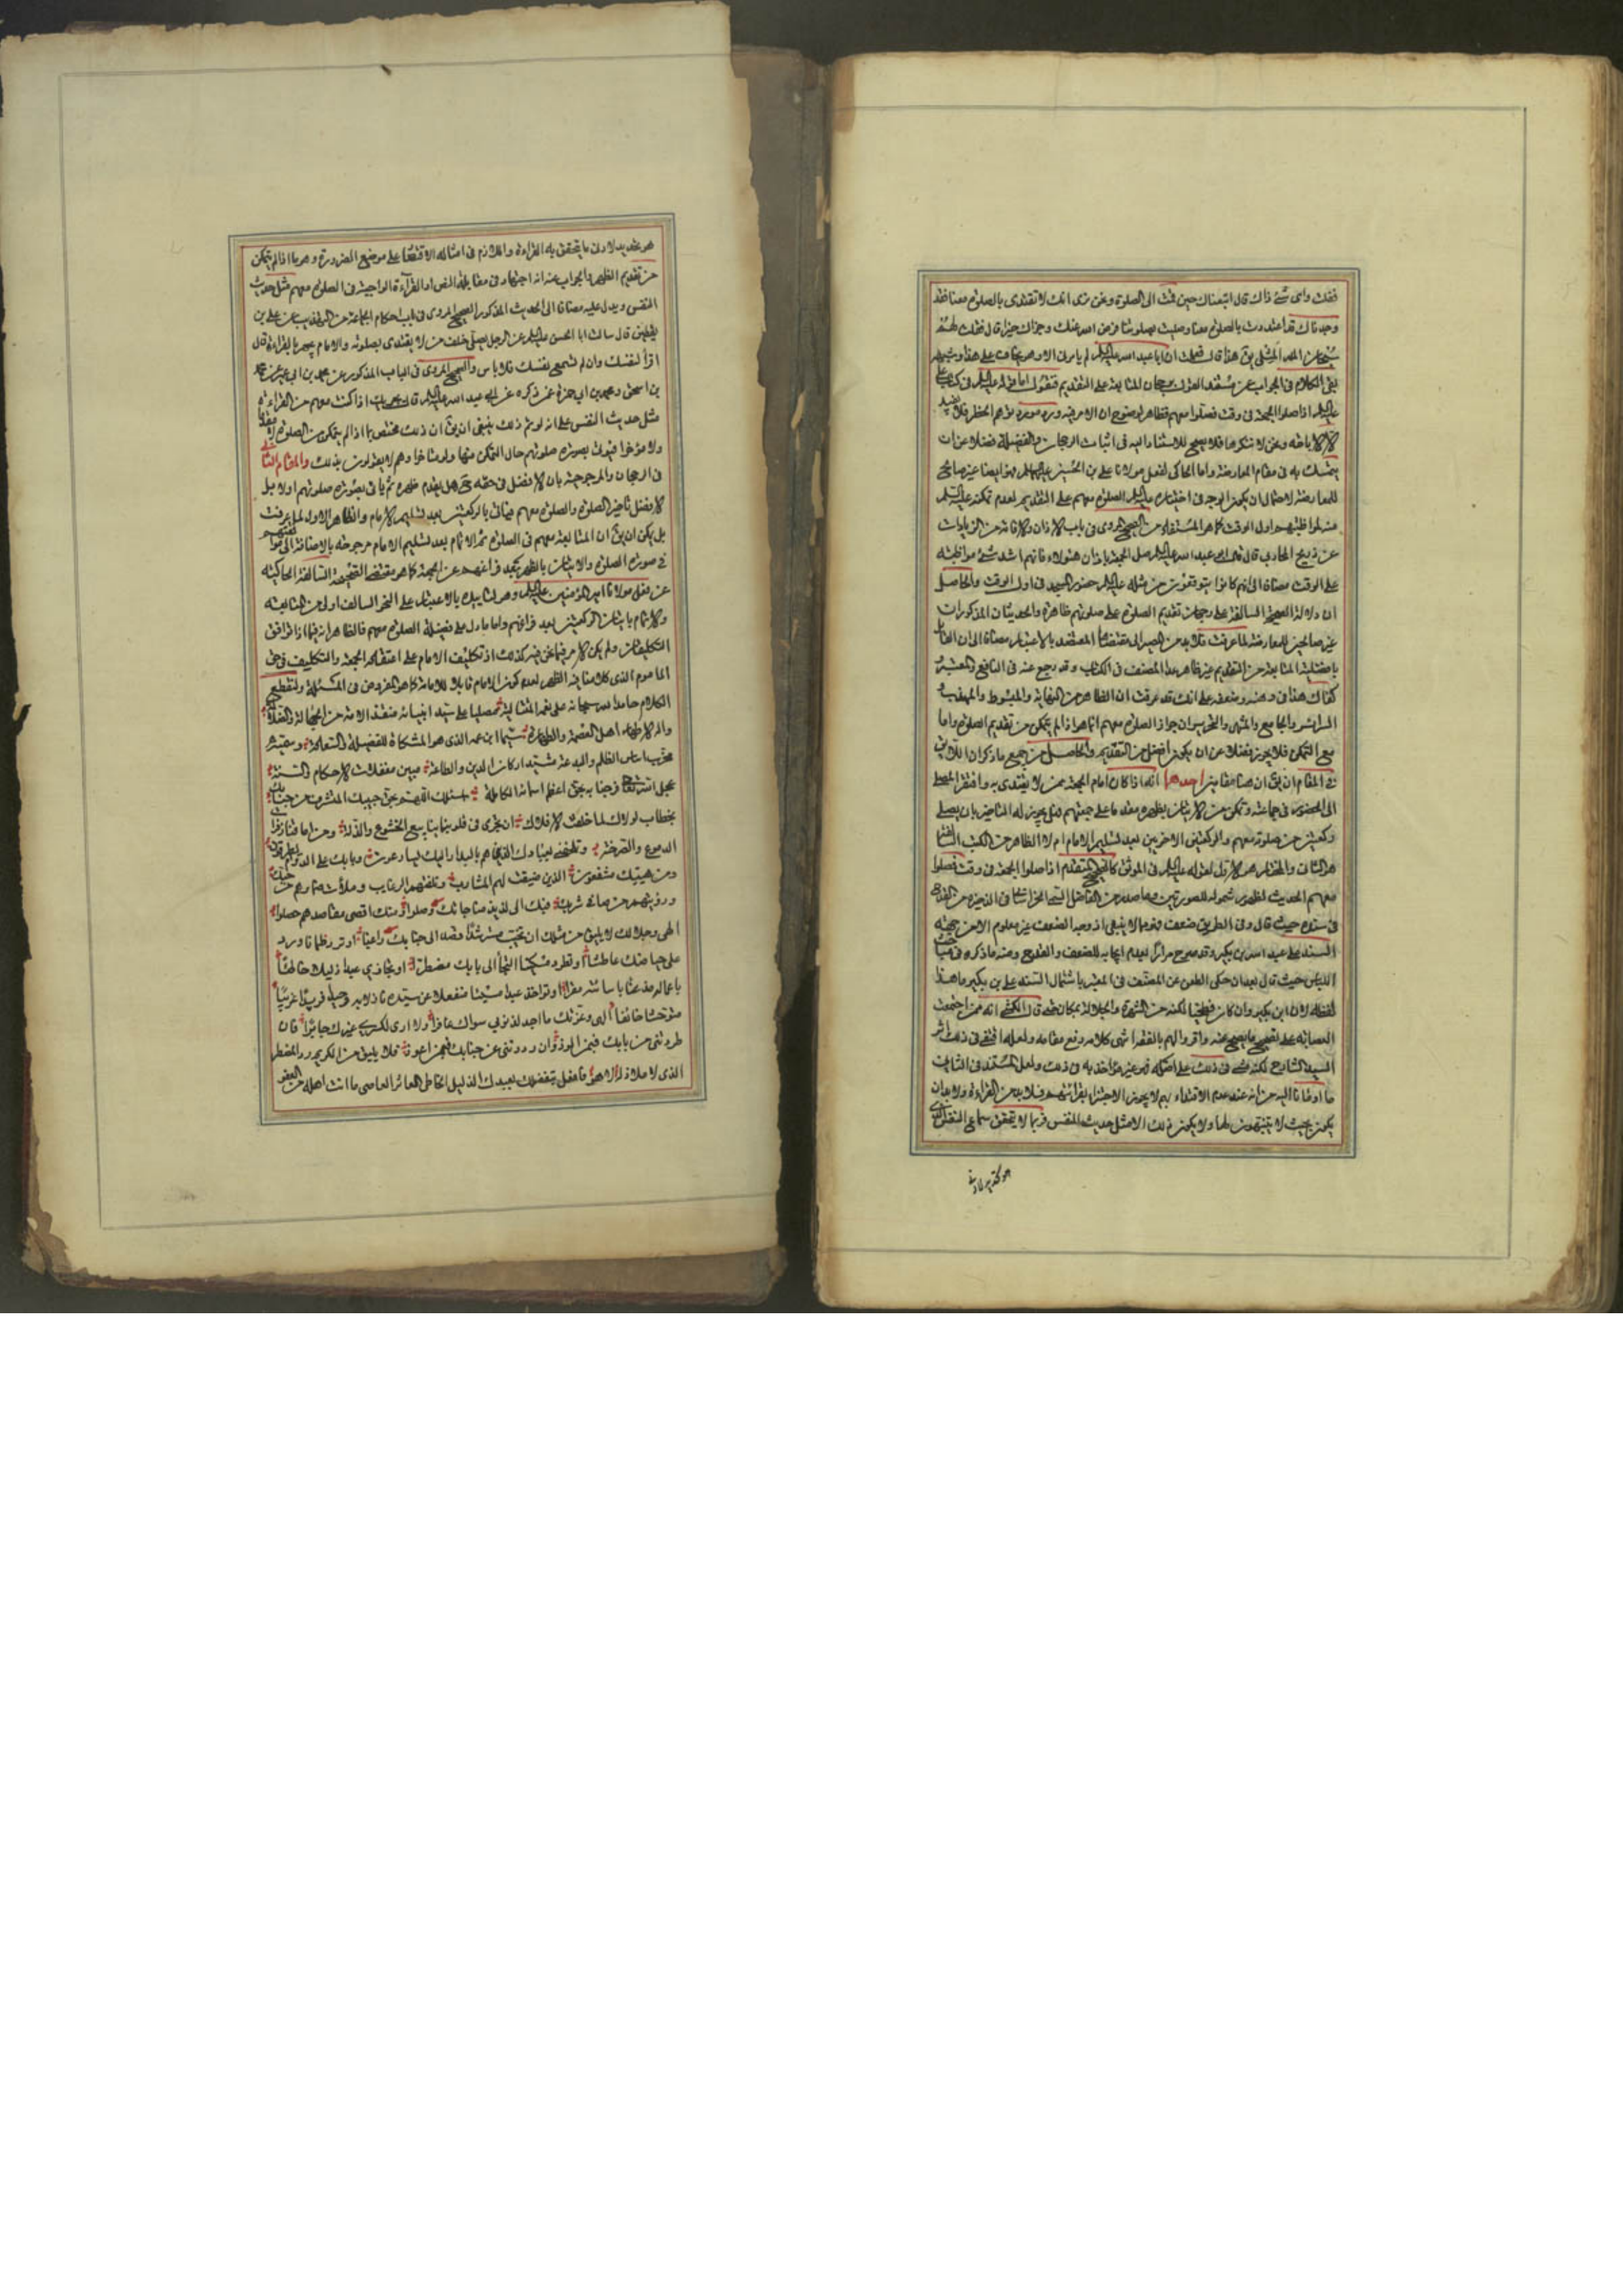 فقلت وای شئ ذاك قال اتبعناك حین قمت الی الصلوة ونحن نری انك لا تقتدی بالصلوة معنا فقد
وجدناك قد اعتددت بالصلوة معنا وصلیت بصلوتنا فرضی الله عنك وجزاك خیرا قال فقلت لهم
سبحان الله المثلی یق هذا قال فعلمت ان ابا عبد الله علیه السلم لم یامرنی الا وهو یخاف علی هذا وشبهه
بقی الكلام فی الجواب عن مستند القول برجحان المتابعة علی التقدیم فنقول اما قوله علیه السلم فی كتاب علی
علیه السلم اذا صلوا الجمعة فی وقت فصلوا معهم فظاهر لوضوح ان الامر فیه ورد مورد توهم الحظر فلا یفید
الا الاباحة ونحن لا ننكرها فلا یصح للاستناد الیه فی اثبات الرجحان والفضیلة فضلا عن ان
یتمسك به فی مقام المعارضة واما الحاكی لفعل مولانا علی بن الحسین علیهما السلم فهو ایضا غیر صالح
للمعارضة لاحتمال ان یكون الوجه فی اختیاره علیه السلم الصلوة معهم علی التقدیم لعدم تمكنه علیه السلم
منه لمواظبتهم اول الوقت كما هو المستفاد من الصحیح المروی فی باب الاذان والاقامة من الزیادات
عن ذریح المحاربی قال قال لی ابو عبد الله علیه السلم صل الجمعة باذان هؤلاء فانهم اشد شئ مواظبة
علی الوقت مضافا الی انهم كانوا یتوقعون من مثله علیه السلم حضور المسجد فی اول الوقت والحاصل
ان دلالة الصحیحة السالفة علی رجحان تقدیم الصلوة علی صلوتهم ظاهرة والحدیثان المذكوران
غیر صالحین للمعارضة لما عرفت فلا بد من المصیر الی مقتضاها المعتضد بالاعتبار مضافا الی ان القائل
بافضلیة المتابعة من التقدیم غیر ظاهر عدا المصنف فی الكتاب وقد رجع عنه فی النافع والمعتبر
كفاك هذا فی وهنه وضعفه علی انك قد عرفت ان الظاهر من النهایة والمبسوط والمهذب و
السرائر والجامع والمنتهی والتحریر ان جواز الصلوة معهم انما هو اذا لم یتمكن من تقدیم الصلوة واما
مع التمكن فلا یجوز فضلا عن ان یكون افضل من التقدیم والحاصل من جمیع ما ذكر ان اللایق
فی المقام ان یق ان هنا مقامین احدهما انه اذا كان امام الجمعة ممن لا یقتدی به وافتقر المصلی
الی الحضور فی جماعته وتمكن من الاتیان بظهره مقدما علی جمعتهم فهل یجوز له التاخیر بان یصلی
ركعتین من صلوته معهم والركعتین الاخریین بعد تسلیم الامام ام لا الظاهر من الكتب السالفة
هو الثانی والمختار هو الاول لقوله علیه السلم فی الموثق كالصحیح المتقدم اذا صلوا الجمعة فی وقت فصلوا
معهم الحدیث لظهور شموله للصورتین وما صدر من الفاضل السبزواری فی الذخیرة من القدح
فی سنده حیث قال وفی الطریق ضعف فهو مما لا ینبغی اذ وجه الضعف غیر معلوم الا من جهة
السند علی عبد الله بن بكیر وقد صرح مرارا بعدم ایجابه للضعف والقدح ومنه ما ذكره فی مبحث
اللباس حیث قال بعد ان حكی الطعن عن المصنف فی المعتبر باشتمال السند علی بن بكیر ما هذا
لفظه لان ابن بكیر وان كان فطحیا لكنه من الشهرة والجلالة بمكان حتی قال الكشی انه ممن اجتمعت
العصابة علی تصحیح ما یصح عنه واقروا لهم بالفقه انتهی كلامه رفع مقامه ولعله اقتفی فی ذلك اثر
السید الشارح لكنه مشی فی ذلك علی اصله فهو غیر مؤاخذ به فی ذلك ولعل المستند فی الثانی
ما اومانا الیه من انه عند عدم الاقتداء بهم لا یجوز الاجتزاء بقرائتهم فلا بد من القراءة ولا بد ان
یكون بحیث لا یتنبهون لها ولا یكون ذلك الا مثل حدیث النفس فربما لا یتحقق سماع النفس الذی
هو عنده بدلا دون ما یتحقق به القراءة واللازم فی امثاله الاقتصار علی موضع الضرورة وهو ما اذا لم یتمكن
من تقدیم الظهر والجواب عنه انه اجتهاد فی مقابلة النص اذ القراءة الواجبة فی الصلوة معهم مثل حدیث
النفس ویدل علیه مضافا الی الحدیث المذكور الصحیح المروی فی باب احكام الجماعة من التهذیب عن علی بن
یقطین قال سالت ابا الحسن علیه السلم عن الرجل یصلی خلف من لا یقتدی بصلوته والامام یجهر بالقراءة قال
اقرأ لنفسك وان لم تسمع نفسك فلا باس والصحیح المروی فی الباب المذكور عن محمد بن ابی عمیر عن محمد
بن اسحق ومحمد بن ابی حمزة عمن ذكره عن ابی عبد الله علیه السلم قال یجزیك اذا كنت معهم من القراءة
مثل حدیث النفس علی انه لو تم ذلك ینبغی ان یق ان ذلك مختص بما اذا لم یتمكن من الصلوة لا مقدما
ولا مؤخرا فیترك بصورة صلوتهم حال التمكن منها ولو متاخرا وهم لا یقولون بذلك والمقام الثانی
فی الرجحان والمرجوحیة بان الافضل فی حقه حتی هل یقدم ظهره ثم یاتی بصورة صلوتهم اولا بل
الافضل تاخیر الصلوة والصلوة معهم فیاتی بالركعتین بعد تسلیم الامام والظاهر الاول لما عرفت
بل یمكن ان یق ان المتابعة معهم فی الصلوة ثم الاتمام بعد تسلیم الامام مرجوحة بالاضافة الی موافقتهم
فی صورة الصلوة والاتیان بالظهر بعد فراغهم عن الجمعة كما هو مقتضی الصحیحة السالفة الحاكیة
عن فعل مولانا امیر المؤمنین علیه السلم وهو لتاییده بالاعتبار علی النحو السالف اولی من المتابعة
والاتمام باتیان الركعتین بعد فراغهم واما ما دل علی فضیلة الصلوة معهم فالظاهر انه فیما اذا توافق
التكلیفان ولم یكن الامر فیما نحن فیه كذلك اذ تكلیف الامام علی اعتقاده الجمعة والتكلیف فی حق
الماموم الذی كلامنا فیه الظهر لعدم كون الامام قابلا للامامة كما هو المفروض فی المسئلة ولنقطع
الكلام حامدا لله سبحانه علی نعمه المتتالیة مصلیا علی سید انبیائه منقذ الامة من الجهالة والضلالة
واله الاطهار اهل العصمة والطهارة سیما ابن عمه الذی هو المشكاة للفضیلة والسعادة وعترته
مخرب اساس الظلم والبدعة مشید اركان الدین والطاعة مبین معضلات الاحكام والسنة
عجل الله فرجنا به بحق اعظم اسمائه الكاملة اسئلك اللهم بحق حبیبك المتشرف من جنابك
بخطاب لولاك لما خلقت الافلاك ان تجری فی قلوبنا ینابیع الخشوع والذلة ومن اماقنا زفرات
الدموع والصرخة وتلحقنی بعبادك الذین هم بالبدار الیك یسارعون وبابك علی الدوام یطرقون
ومن هیبتك مشفقون الذین صفیت لهم المشارب وبلغتهم الرغایب وملأت ضمائرهم من حبك
ورویتهم من صافی شربك فبك الی لذیذ مناجاتك وصلوا ومنك اقصی مقاصدهم حصلوا
الهی وجلالك لا یلیق من مثلك ان تخیب مسترشدا قصد الی جنابك راغبا او ترد ظمانا ورد
علی حیاضك عاطشا او تطرد مسكینا التجأ الی بابك مضطرا او تجازی عبدا ذلیلا خائفا
باعماله مذعنا باسائته مقرا او تواخذ عبدا مسیئا منفعلا عن سیده نادلا به وحیدا فریدا غریبا
متوحشا خائفا الهی وعزتك ما اجد لذنوبی سواك غافرا ولا اری لكسری غیرك جابرا فان
طردتنی من بابك فبمن الوذ وان رددتنی عن جنابك فبمن اعوذ فلا یلیق من الكریم رد المضطر
الذی لا ملاذ له الا هو فافعل بتفضلك بعبدك الذلیل الخاطی العاثر العاصی ما انت اهله من العفو